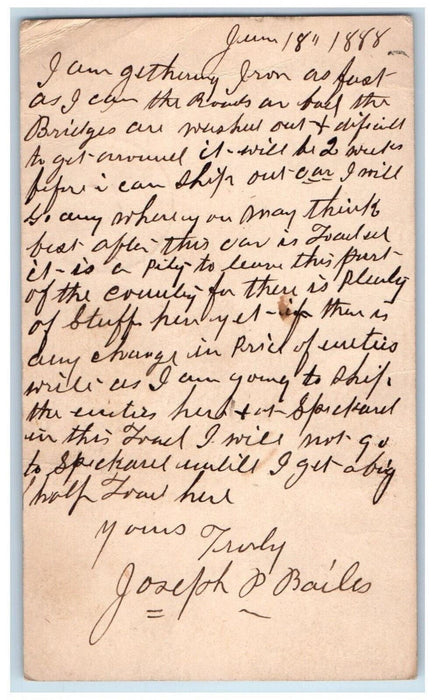 June 18" 1888
I am gethering Iron as fast
as I can the Roads ar bad the
Bridges are washed out & dificilt
to get arround it will be 2 weeks
before i can ship out car I will
go any where you may think
best after this car is Loaded
it is a pity to leave this part
of the country for there is Plenty
of Stuff her yet if ther is
any change in Price of emties
write as I am going to ship
the emties here & at Spickard
in this Load I will not go
to Spickard untill I get a big
half Load here
Yours Truly
Joseph P Bailes